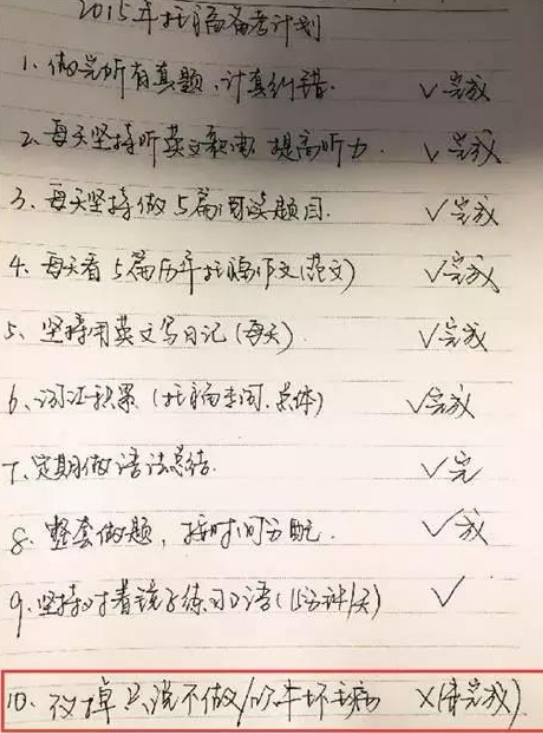 2015年托福备考计划
1、做完所有真题,计真纠错. ✓完成
2、每天坚持听英文新闻 提高听力. ✓完成
3、每天坚持做5篇阅读题目. ✓完成
4、每天看5篇历年托福作文(范文) ✓完成
5、坚持用英文写日记(每天) ✓完成
6、词汇积累(托福专词、总体) ✓完成
7、定期做语法总结. ✓完
8、整套做题,按时间分配. ✓成
9、坚持对着镜子练习口语(15分钟/天) ✓
10、改掉只说不做/吹牛坏毛病 ×(待完成)